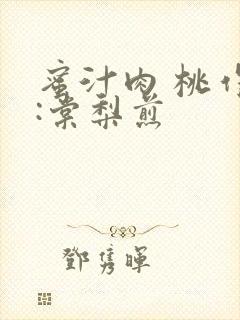 蜜汁肉 桃 作
:棠梨煎
鄧雋暉